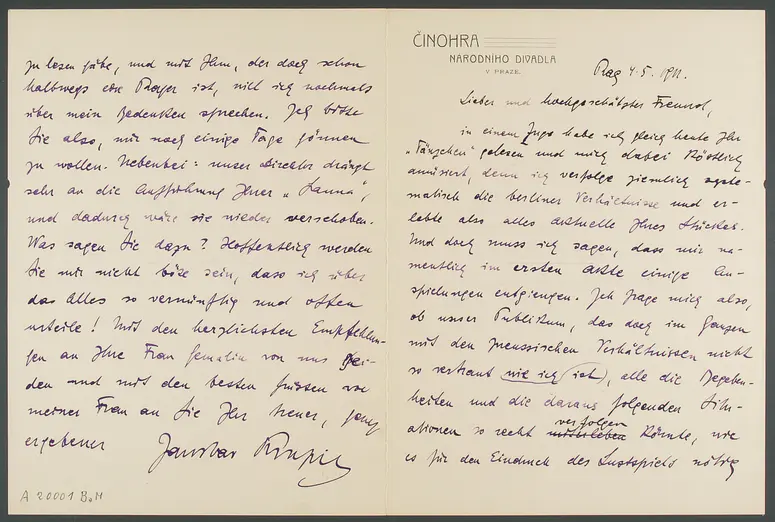 ČINOHRA
NÁRODNÍHO DIVADLA
V PRAZE.
Prag 4.5. 1911.
Lieber und hochgeschätzter Freund,
in einem Zuge habe ich gleich heute Ihr
"Tänzchen" gelesen und mich dabei köstlich
amüsiert, denn ich verfolge ziemlich syste-
matisch die berliner Verhältnisse und er-
lebte also alles aktuelle Ihres Stückes.
Und doch muss ich sagen, dass mir na-
mentlich im ersten Akte einige An-
spielungen entgiengen. Ich frage mich also,
ob unser Publikum, das doch im Ganzen
mit den preussischen Verhältnissen nicht
so vertraut wie ich (ist), alle die Begeben-
heiten und die daraus folgenden Situ-
ationen so recht verfolgen könnte, wie
es für den Eindruck des Lustspiels nötig
zu lesen gäbe, und mit Ihm, der doch schon
halbwegs ein Prager ist, will ich nochmals
über mein Bedenken sprechen. Ich bitte
Sie also, mir noch einige Tage gönnen
zu wollen. Nebenbei: unser Direktor drängt
sehr an die Aufführung Ihrer "Hanna",
und dadurch wäre sie wieder verschoben.
Was sagen Sie dazu? Hoffentlich werden
Sie mir nicht böse sein, dass ich über
das Alles so vernünftig und offen
urteile! Mit den herzlichsten Empfehlun-
gen an Ihre Frau Gemalin von uns bei-
den und mit den besten Grüssen von
meiner Frau an Sie Ihr treuer, ganz
ergebener Jaroslav Kvapil
A 20001 B.H